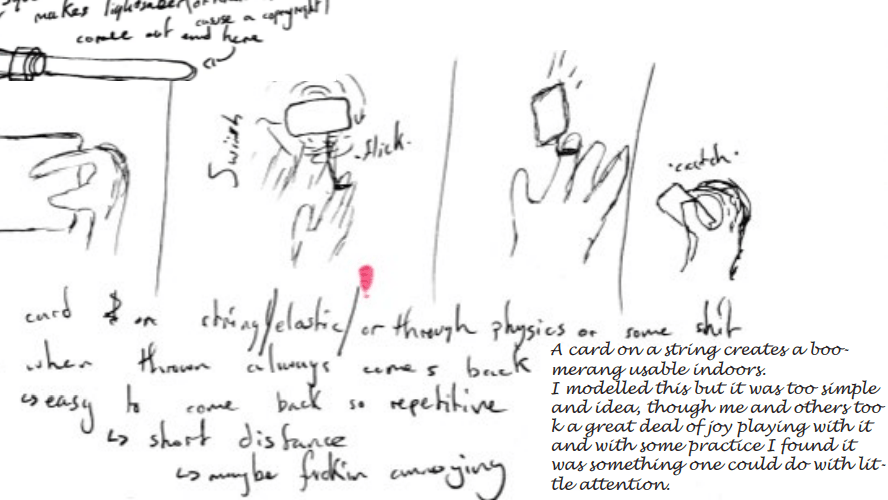 makes lightsaber (or
cause a copyright)
comes out end here
Swish
flick.
.catch.
card on string/elastic/or through physics or some shit
when thrown always comes back
easy to come back so repetitive
short distance
maybe frckin annoying
A card on a string creates a boo-
merang usable indoors.
I modelled this but it was too simple
and idea, though me and others too
k a great deal of joy playing with it
and with some practice I found it
was something one could do with lit-
tle attention.